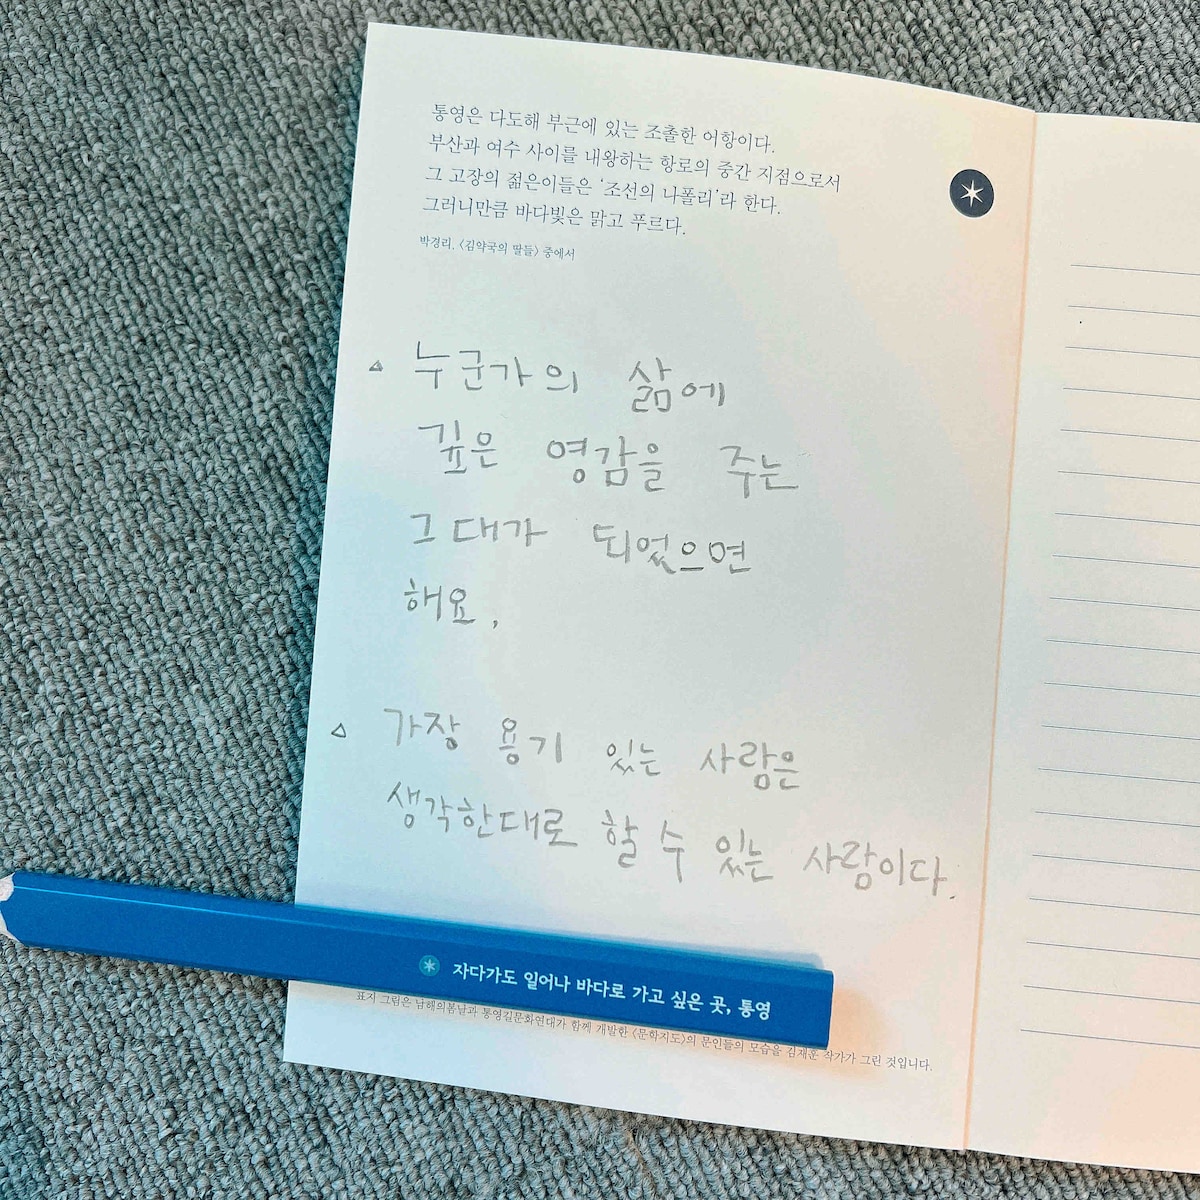 통영은 다도해 부근에 있는 조촐한 어항이다.
부산과 여수 사이를 내왕하는 항로의 중간 지점으로서
그 고장의 젊은이들은 ‘조선의 나폴리’라 한다.
그러니만큼 바다빛은 맑고 푸르다.
박경리. 〈김약국의 딸들〉 중에서
△ 누군가의 삶에
깊은 영감을 주는
그대가 되었으면
해요.
△ 가장 용기 있는 사람은
생각한대로 할 수 있는 사람이다.
자다가도 일어나 바다로 가고 싶은 곳, 통영
표지 그림은 남해의봄날과 통영길문화연대가 함께 개발한 〈문학지도〉의 문인들의 모습을 김재훈 작가가 그린 것입니다.